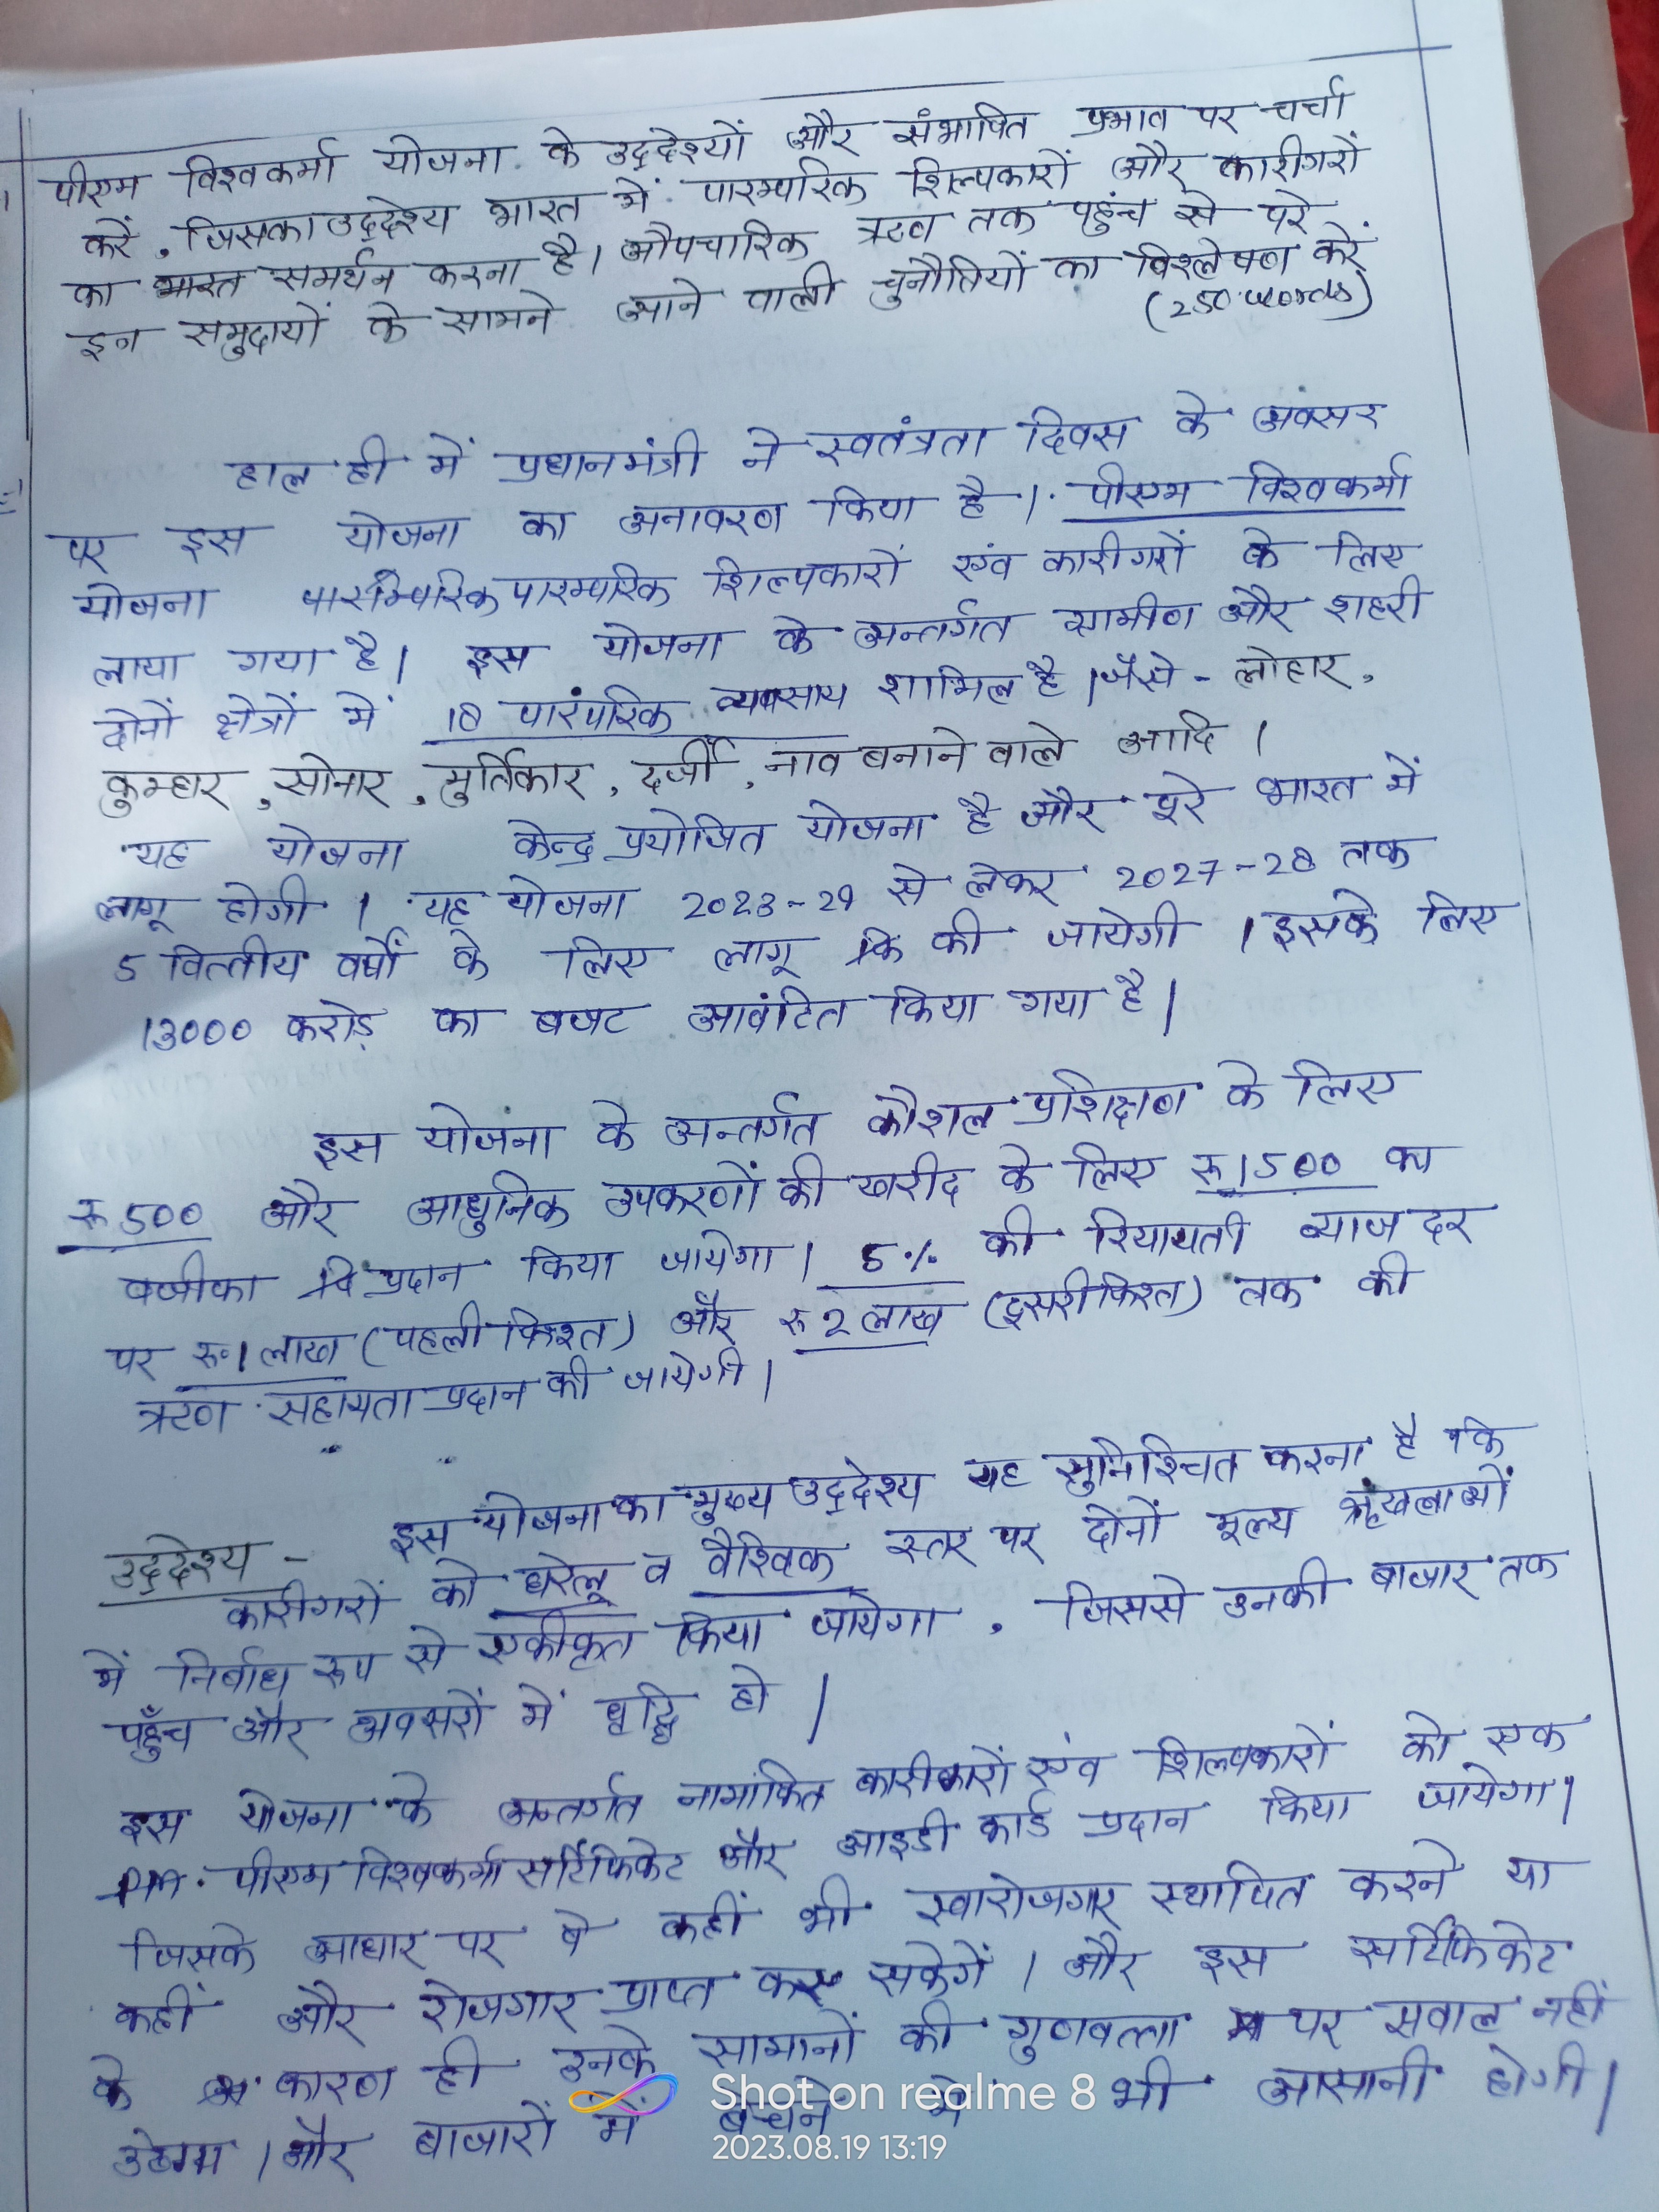 पीएम विश्वकर्मा योजना के उद्देश्यों और संभावित प्रभाव पर चर्चा
करें, जिसका उद्देश्य भारत में पारम्परिक शिल्पकारों और कारीगरों
का भारत समर्थन करना है। औपचारिक ऋण तक पहुंच से परे
इन समुदायों के सामने आने वाली चुनौतियों का विश्लेषण करें
(250 words)
हाल ही में प्रधानमंत्री ने स्वतंत्रता दिवस के अवसर
पर इस योजना का अनावरण किया है। पीएम विश्वकर्मा
योजना पारम्परिक शिल्पकारों एंव कारीगरों के लिए
लाया गया है। इस योजना के अन्तर्गत ग्रामीण और शहरी
दोनों क्षेत्रों में 18 पारंपरिक व्यवसाय शामिल है। जैसे - लोहार,
कुम्हार, सोनार, मुर्तिकार, दर्जी, नाव बनाने वाले आदि।
यह योजना केन्द्र प्रयोजित योजना है और पूरे भारत में
लागू होगी। यह योजना 2023-24 से लेकर 2027-28 तक
5 वित्तीय वर्षों के लिए लागू की जायेगी। इसके लिए
13000 करोड़ का बजट आवंटित किया गया है।
इस योजना के अन्तर्गत कौशल प्रशिक्षण के लिए
रू 500 और आधुनिक उपकरणों की खरीद के लिए रू 1500 का
वजीका प्रदान किया जायेगा। 5% की रियायती ब्याज दर
पर रू 1 लाख (पहली किश्त) और रू 2 लाख (दूसरी किश्त) तक की
ऋण सहायता प्रदान की जायेगी।
उद्देश्य - इस योजना का मुख्य उद्देश्य यह सुनिश्चित करना है कि
कारीगरों को घरेलू व वैश्विक स्तर पर दोनों मूल्य श्रृंखलाओं
में निर्बाध रूप से एकीकृत किया जायेगा, जिससे उनकी बाजार तक
पहुँच और अवसरों में वृद्धि हो।
इस योजना के अन्तर्गत नामांकित कारीकारों एंव शिल्पकारों को एक
पीएम विश्वकर्मा सर्टिफिकेट और आइडी कार्ड प्रदान किया जायेगा।
जिसके आधार पर वे कहीं भी स्वारोजगार स्थापित करने या
कहीं और रोजगार प्राप्त कर सकेगें। और इस सर्टिफिकेट
के कारण ही उनके सामानों की गुणवत्ता पर सवाल नहीं
उठेगा। और बाजारों में बेचने में भी आसानी होगी।
Shot on realme 8
2023.08.19 13:19